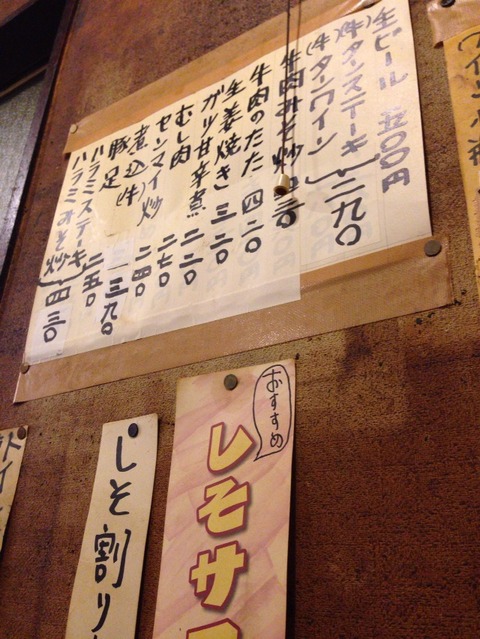 生ビール 五〇〇円
(牛)タンステーキ
(牛)タンワイン 二九〇
牛肉みそ炒 三〇
牛肉のたたき 四二〇
生姜焼き 三二〇
ガツ甘辛煮 二二〇
むし肉 二七〇
センマイ炒 二四〇
煮込(牛)
豚足 三九〇
ハラミステーキ 二五〇
ハラミみそ炒 四三〇
おすすめ
しそサ
しそ割り
トイ